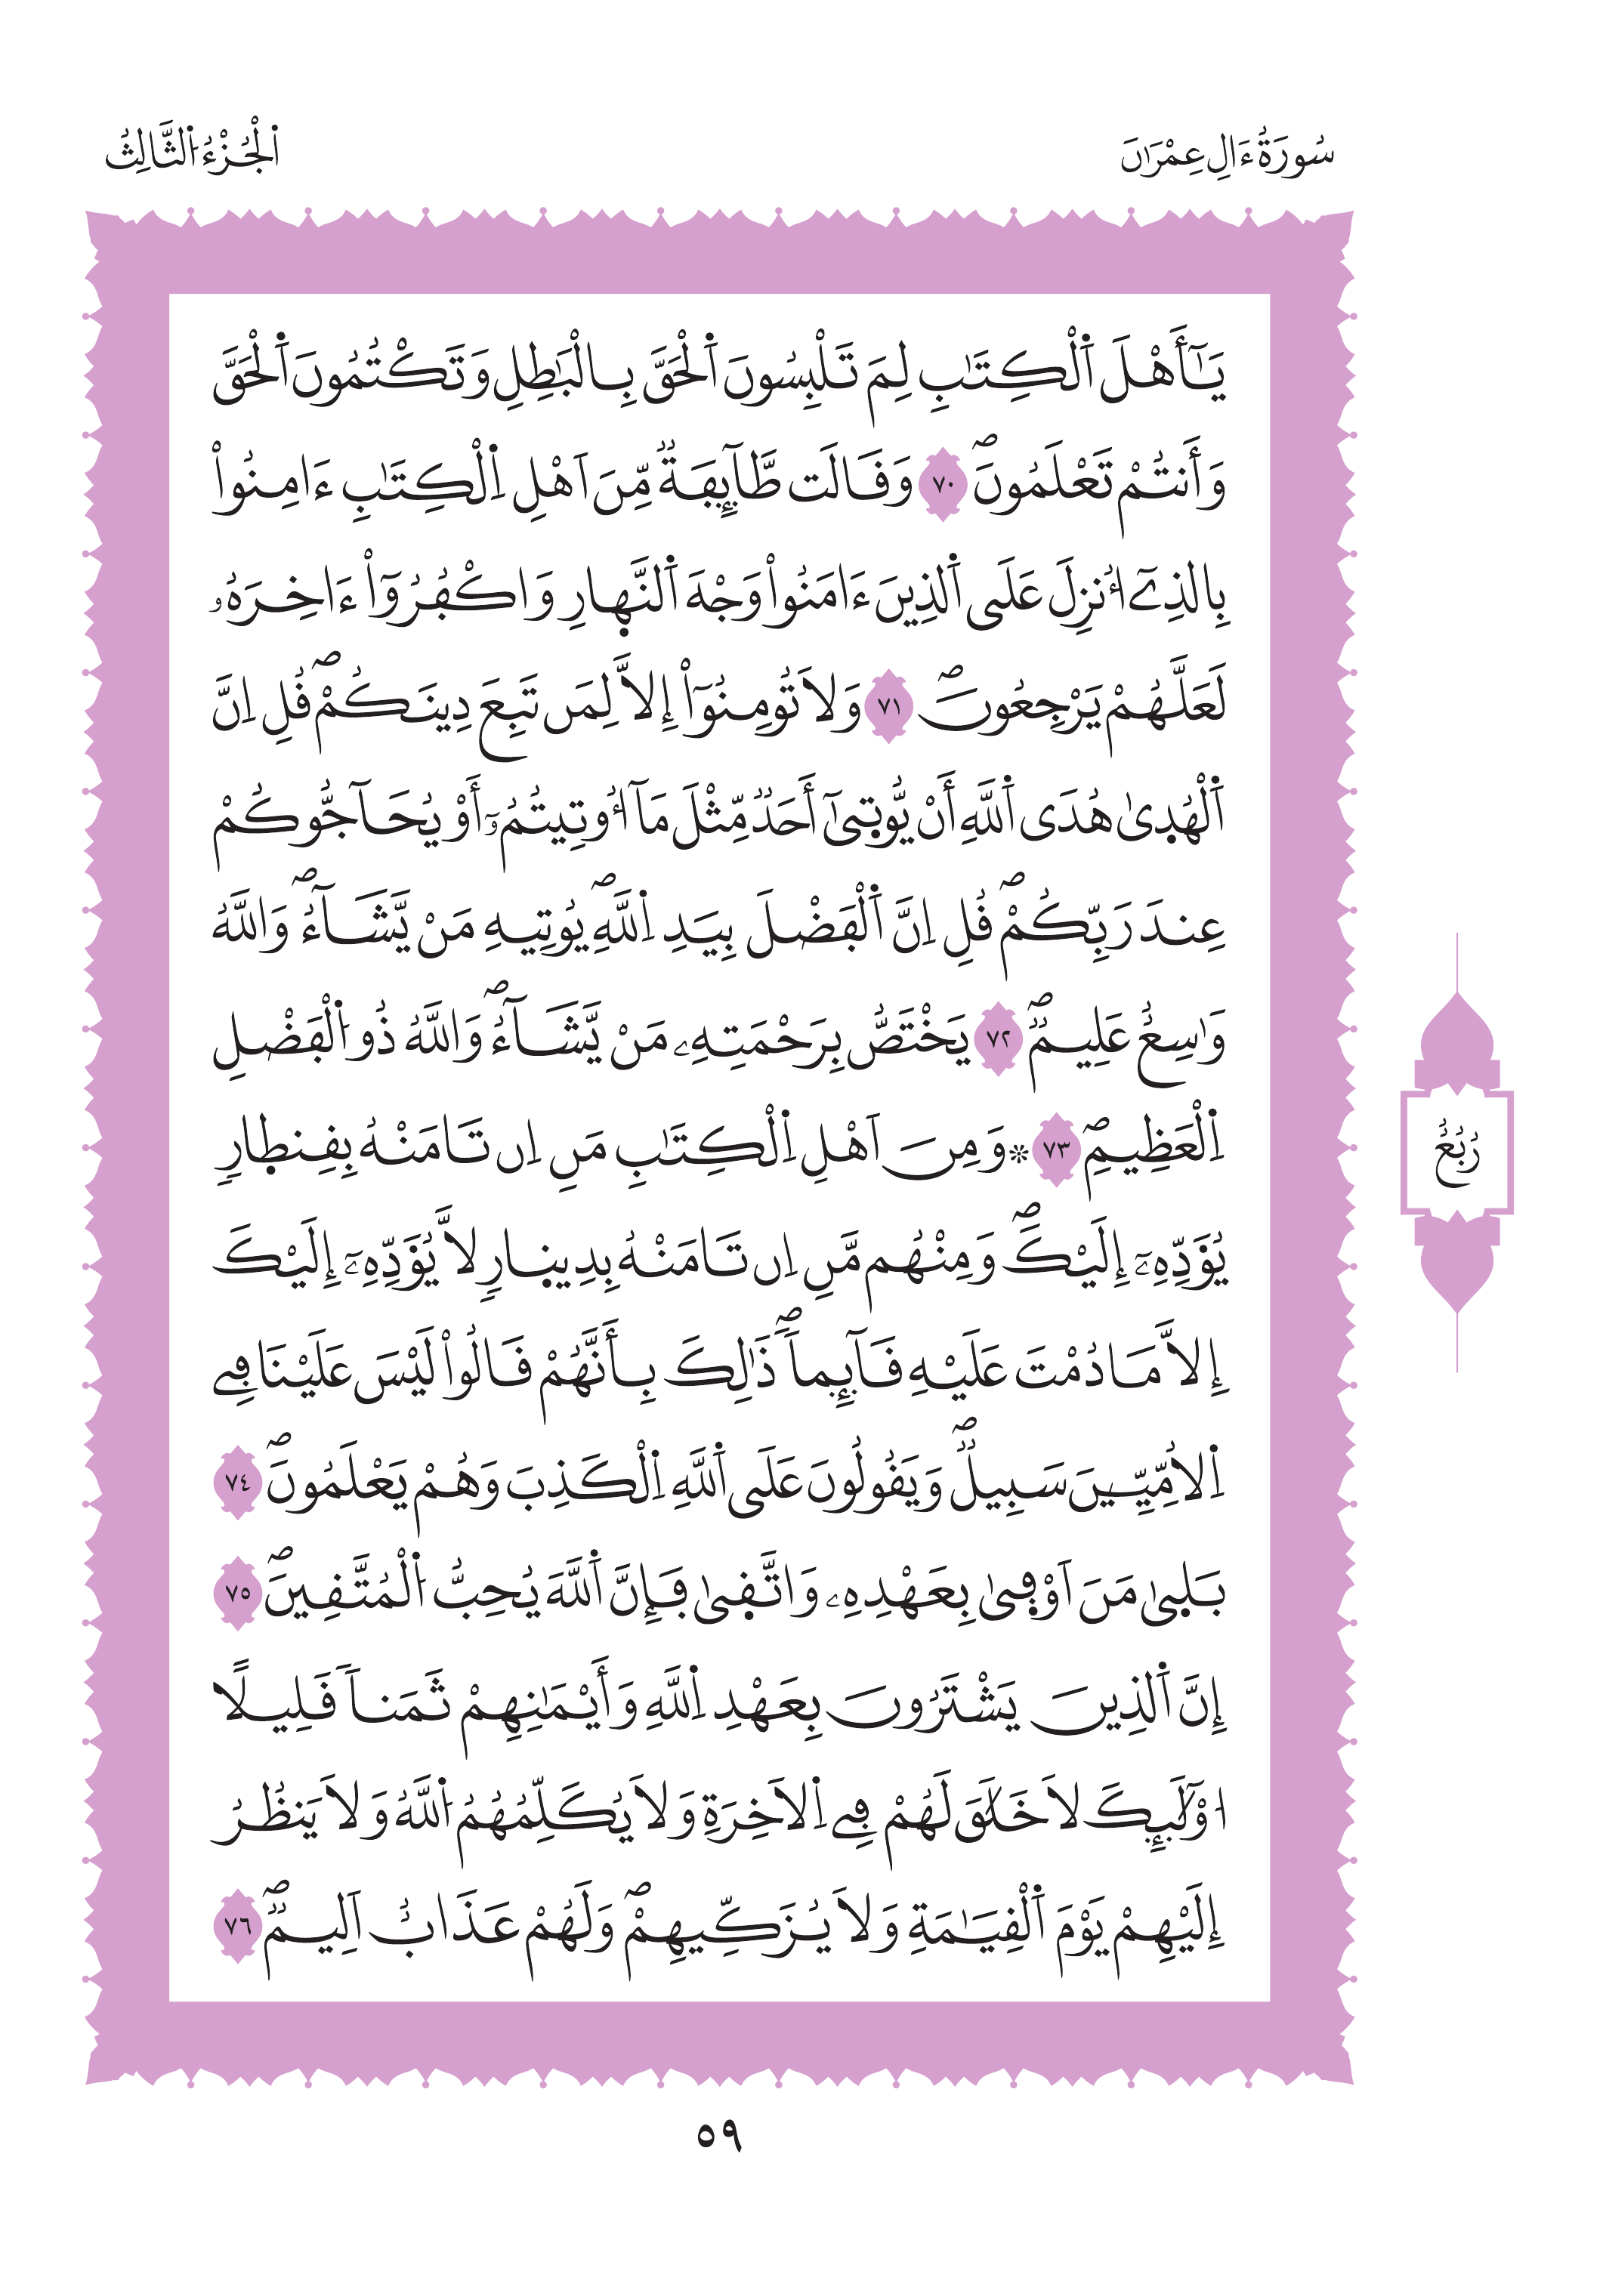 سُورَةُ ءَالِ عِمْرَٰنَ
اَ۬لْجُزْءُ اُ۬لثَّالِثُ
يَٰٓأَهْلَ اَ۬لْكِتَٰبِ لِمَ تَلْبِسُونَ اَ۬لْحَقَّ بِالْبَٰطِلِ وَتَكْتُمُونَ اَ۬لْحَقَّ
وَأَنتُمْ تَعْلَمُونَۖ ٧٠ وَقَالَت طَّآئِفَةٞ مِّنَ اَهْلِ اِ۬لْكِتَٰبِ ءَامِنُواْ
بِالذِےٓ أُنزِلَ عَلَى اَ۬لذِينَ ءَامَنُواْ وَجْهَ اَ۬لنَّه۪ارِ وَاكْفُرُوٓاْ ءَاخِرَهُۥ
لَعَلَّهُمْ يَرْجِعُونَۖ ٧١ وَلَا تُومِنُوٓاْ إِلَّا لِمَن تَبِعَ دِينَكُمْۖ قُلِ اِنَّ
اَ۬لْهُد۪ىٰ هُدَى اَ۬للَّهِ أَنْ يُّوت۪ىٰٓ أَحَدٞ مِّثْلَ مَآ أُوتِيتُمُۥٓ أَوْ يُحَآجُّوكُمْ
عِندَ رَبِّكُمْۖ قُلِ اِنَّ اَ۬لْفَضْلَ بِيَدِ اِ۬للَّهِۖ يُوتِيهِ مَنْ يَّشَآءُۖ وَاللَّهُ
وَٰسِعٌ عَلِيمٞۖ ٧٢ يَخْتَصُّ بِرَحْمَتِهِۦ مَنْ يَّشَآءُۖ وَاللَّهُ ذُو اُ۬لْفَضْلِ
اِ۬لْعَظِيمِۖ ٧٣ ۞ وَمِنَ اَهْلِ اِ۬لْكِتَٰبِ مَنِ اِن تَامَنْهُ بِقِنط۪ارٖ
يُؤَدِّهِۦٓ إِلَيْكَۖ وَمِنْهُم مَّنِ اِن تَامَنْهُ بِدِين۪ارٖ لَّا يُؤَدِّهِۦٓ إِلَيْكَ
إِلَّا مَا دُمْتَ عَلَيْهِ قَآئِماٗۖ ذَٰلِكَ بِأَنَّهُمْ قَالُواْ لَيْسَ عَلَيْنَا فِے
اِ۬لُامِّيِّـۧنَ سَبِيلٞۖ وَيَقُولُونَ عَلَى اَ۬للَّهِ اِ۬لْكَذِبَ وَهُمْ يَعْلَمُونَۖ ٧٤
بَل۪ىٰ مَنَ اَوْف۪ىٰ بِعَهْدِهِۦ وَاتَّق۪ىٰ فَإِنَّ اَ۬للَّهَ يُحِبُّ اُ۬لْمُتَّقِينَۖ ٧٥
إِنَّ اَ۬لذِينَ يَشْتَرُونَ بِعَهْدِ اِ۬للَّهِ وَأَيْمَٰنِهِمْ ثَمَناٗ قَلِيلًا
اُوْلَٰٓئِكَ لَا خَلَٰقَ لَهُمْ فِے اِ۬لَاخِرَةِ وَلَا يُكَلِّمُهُمُ اُ۬للَّهُ وَلَا يَنظُرُ
إِلَيْهِمْ يَوْمَ اَ۬لْقِيَٰمَةِ وَلَا يُزَكِّيهِمْۖ وَلَهُمْ عَذَابٌ اَلِيمٞۖ ٧٦
رُبُعُ
٥٩